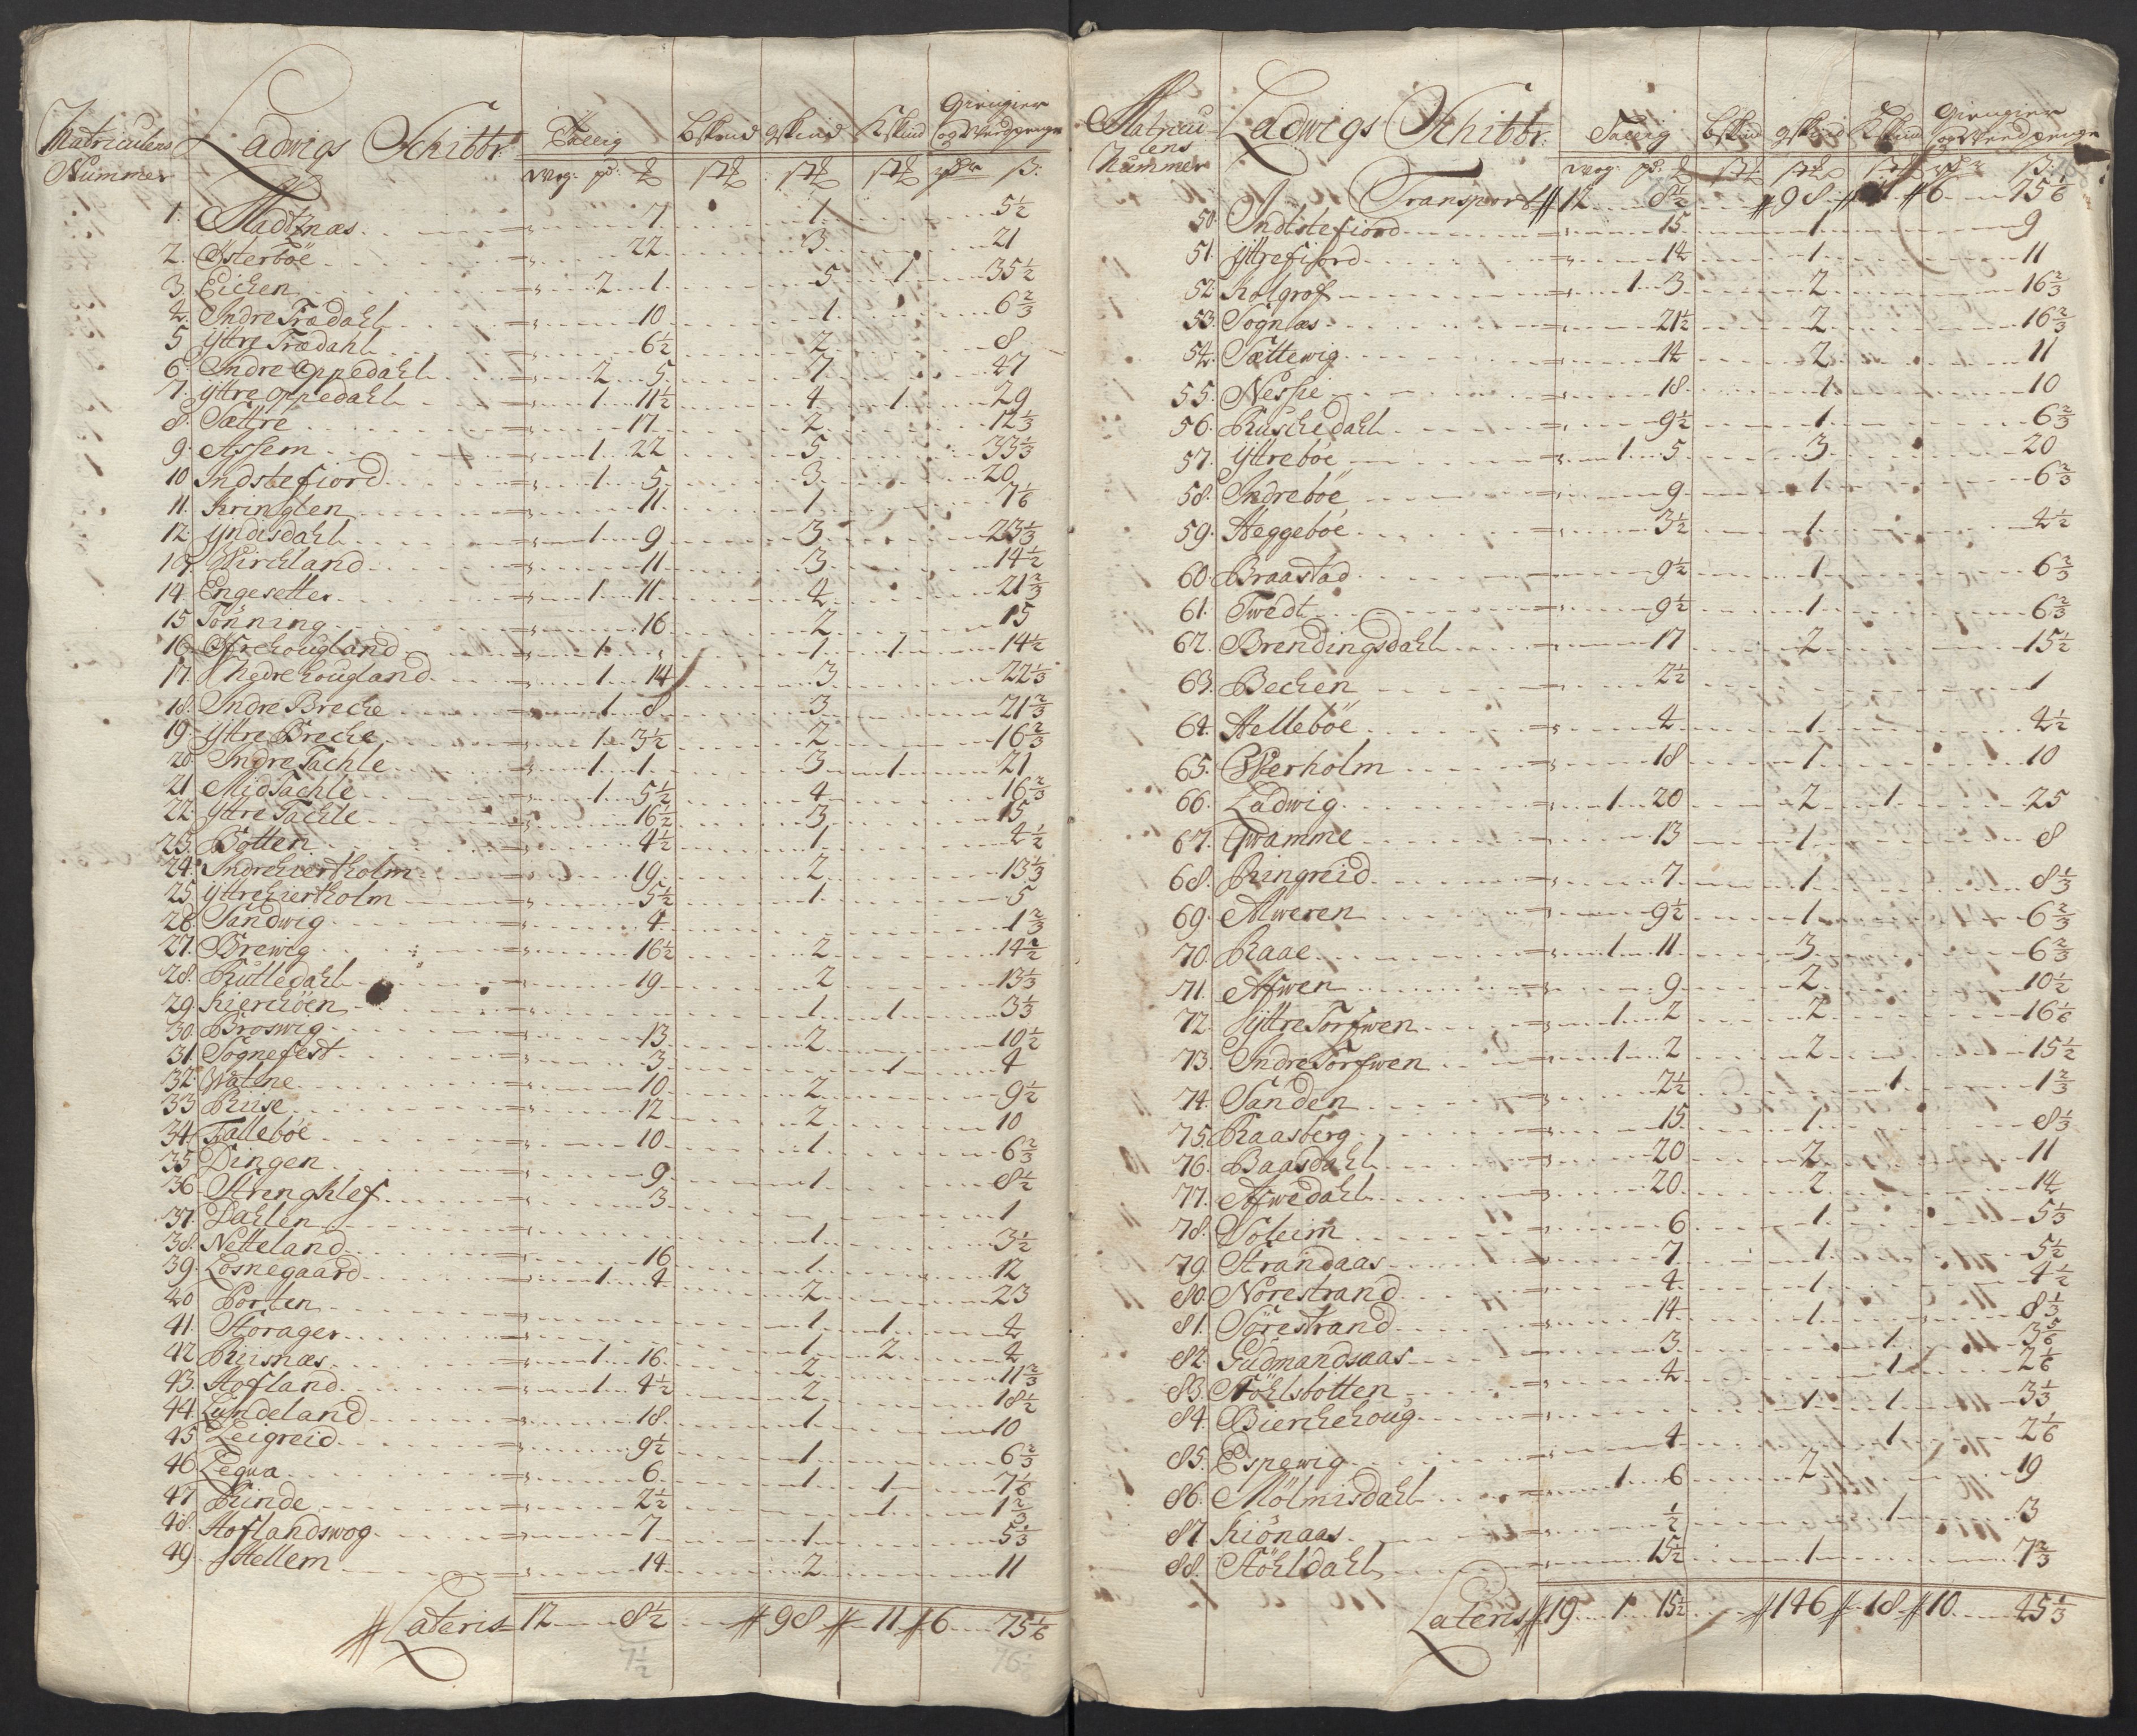 Matriculens Nummer Ladwigs Schibbr: Tallig Bskind gskind Kskind Giengier og Werdpenge
Wog: pd: ℔ st st st rdr ß:
1. Stadtznæs 7 1 5½
2. Østerböe 22 3 21
3. Eichen 2 1 5 1 35½
4. Indre Trædahl 10 1 6⅔
5 Yttre Trædahl 6½ 2 8
6 Indre Oppedahl 2 5 7 47
7. Yttre Oppedahl 1 11½ 4 1 29
8. Sættre 17 2 12⅓
9. Assem 1 22 5 33⅓
10 Indstefiord 1 5 3 20
11. Kringlen 11 1 7⅙
12 Yndisdahl 1 9 3 23⅓
13 Kirchland 11 3 14½
14 Engesetter 1 11 4 21⅔
15 Tönning 16 2 15
16 Öfrehougland 1 1 1 14½
17. Nedrehougland 1 14 3 22⅓
18. Indre Breche 1 8 3 21⅔
19. Yttre Breche 1 3½ 2 16⅔
20 Indre Tachle 1 1 3 1 21
21 Mid Tachle 1 5½ 4 16⅔
22 Yttre Tachle 16½ 3 15
23. Botten 4½ 1 4½
24. Indrehvertholm 19 2 13⅓
25. Yttrehvertholm 5½ 1 5
26. Sandwig 4 1⅔
27. Brewig 16½ 2 14½
28. Rutledahl 19 2 13⅓
29. Kierhöen 1 1 3⅓
30. Broswig 13 2 10½
31. Sognefest 3 1 4
32. Watne 10 2 9½
33 Riise 12 2 10
34. Falleböe 10 1 6⅔
35 Dingen 9 1 8½
36 Strenghlef 3 1
37. Dahlen 1 3½
38. Netteland 16 1 12
39. Losnegaard 1 4 2 23
40 Porten 1 1 4
41. Storager 1 2 4
42 Riisnæs 1 16 2 11⅔
43. Hofland 1 4½ 2 18½
44. Lundeland 18 1 10
45 Leigreid 9½ 1 6⅔
46 Legua 6 1 1 7⅙
47 Rinde 2½ 1 1⅔
48. Hoflandswog 7 1 5⅓
49. Hellem 14 2 11
Lateris 12 8½ 98 11 6 75⅙
7½ 76½
Matriculens Nummer Ladwigs Schibbr: Tallig Bskind gskind Kskind Giengier og Werdpenge
Wog: pd: ℔ st st st rdr ß:
Transport 12 8½ 98 11 6 75⅙
50. Indstefiord 15 1 9
51. Yttrefiord 14 1 11
52. Kolgrof 1 3 2 16⅔
53. Sognæs 21½ 2 16⅔
54. Sættewig 14 2 11
55. Nessie 18 1 10
56. Ruschedahl 9½ 1 6⅔
57. Yttreböe 1 5 3 20
58. Indreböe 9 1 6⅔
59. Heggeböe 3½ 1 4½
60 Braastad 9½ 1 6⅔
61. Twedt 9½ 1 6⅔
62. Brendingsdahl 17 2 15½
63. Bechen 2½ 1
64. Helleböe 4 1 4½
65. Werholm 18 1 10
66. Ladwig 1 20 2 1 25
67. Qwamme 13 1 8
68. Ringreid 7 1 8⅓
69. Alweren 9½ 1 6⅔
70. Raae 1 11 3 6⅔
71. Afwen 9 2 10½
72. Yttre Torfwen 1 2 2 16⅙
73. Indre Torfwen 1 2 2 15½
74. Sanden 2½ 1 1⅔
75. Raasberg 15 1 8⅓
76. Baasdahl 20 2 11
77. Afwedahl 20 2 14
78. Soleim 6 1 5⅓
79. Strandaas 7 1 5½
80. Norestrand 4 1 4½
81. Sörestrand 14 1 8⅓
82. Gudmandsaas 3 1 3⅚
83. Stöhlsbotten 4 1 2⅙
84. Bierchehoug 1 1 3⅓
85. Espewig 4 1 2⅙
86. Mölmisdahl 1 6 2 19
87 Kiönaas ½ 1 3
88. Stöhldahl 15½ 1 7⅔
Lateris 19 1 15½ 146 18 10 45⅓